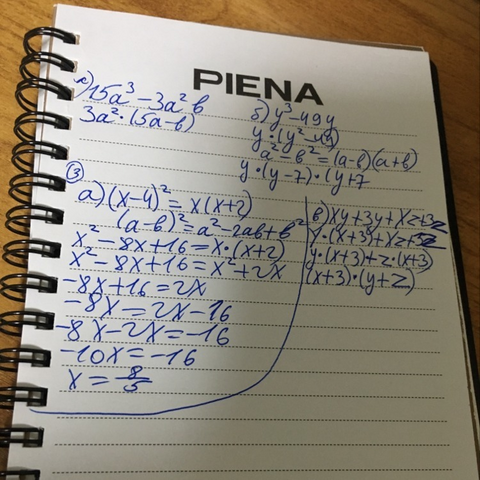 PIENA
а) 15a³ - 3a²b
3a² · (5a-b)
б) y³ - 49y
y · (y² - 49)
a² - b² = (a-b)(a+b)
y · (y-7) · (y+7
③
а) (x-4)² = x(x+2)
(a-b)² = a² - 2ab + b²
x² - 8x + 16 = x · (x+2)
x² - 8x + 16 = x² + 2x
-8x + 16 = 2x
-8x = 2x - 16
-8x - 2x = -16
-10x = -16
x = 8/5
в) xy + 3y + xz + 3z
y · (x+3) + xz + 3z
y · (x+3) + z · (x+3)
(x+3) · (y+z)